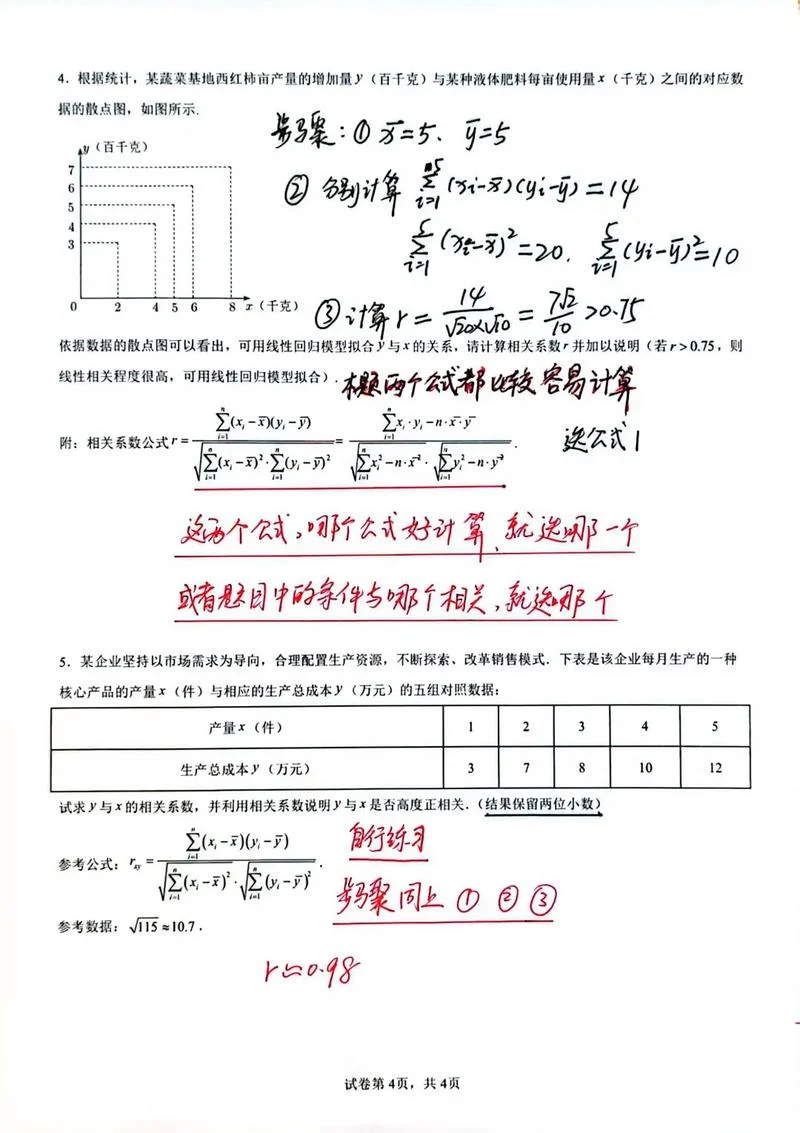 4．根据统计，某蔬菜基地西红柿亩产量的增加量 y（百千克）与某种液体肥料每亩使用量 x（千克）之间的对应数
据的散点图，如图所示.
步骤：① x̄=5、 ȳ=5
y（百千克）
7
6
5
4
3
0 2 4 5 6 8 x（千克）
② 分别计算 ∑_{i=1}^{5}(xi-x̄)(yi-ȳ)=14
∑_{i=1}^{5}(xi-x̄)²=20. ∑_{i=1}^{5}(yi-ȳ)²=10
③ 计算 r = 14/(√20×√10) = 7√2/10 >0.75
依据数据的散点图可以看出，可用线性回归模型拟合 y 与 x 的关系，请计算相关系数 r 并加以说明（若 r＞0.75，则
线性相关程度很高，可用线性回归模型拟合）.
本题两个公式都比较容易计算
选公式1
附：相关系数公式 r = ∑_{i=1}^{n}(x_i-x̄)(y_i-ȳ) / √(∑_{i=1}^{n}(x_i-x̄)²·∑_{i=1}^{n}(y_i-ȳ)²) = (∑_{i=1}^{n}x_i·y_i-n·x̄·ȳ) / (√(∑_{i=1}^{n}x_i²-n·x̄²)·√(∑_{i=1}^{n}y_i²-n·ȳ²)).
这两个公式，哪个公式好计算、就选哪一个
或者题目中的条件与哪个相关，就选哪个
5．某企业坚持以市场需求为导向，合理配置生产资源，不断探索、改革销售模式．下表是该企业每月生产的一种
核心产品的产量 x（件）与相应的生产总成本 y（万元）的五组对照数据：
产量 x（件） 1 2 3 4 5
生产总成本 y（万元） 3 7 8 10 12
试求 y 与 x 的相关系数，并利用相关系数说明 y 与 x 是否高度正相关．（结果保留两位小数）
参考公式： r_xy = ∑_{i=1}^{n}(x_i-x̄)(y_i-ȳ) / (√(∑_{i=1}^{n}(x_i-x̄)²)·√(∑_{i=1}^{n}(y_i-ȳ)²)).
自行练习
步骤同上 ① ② ③
参考数据：√115≈10.7．
r≈0.98
试卷第4页，共4页